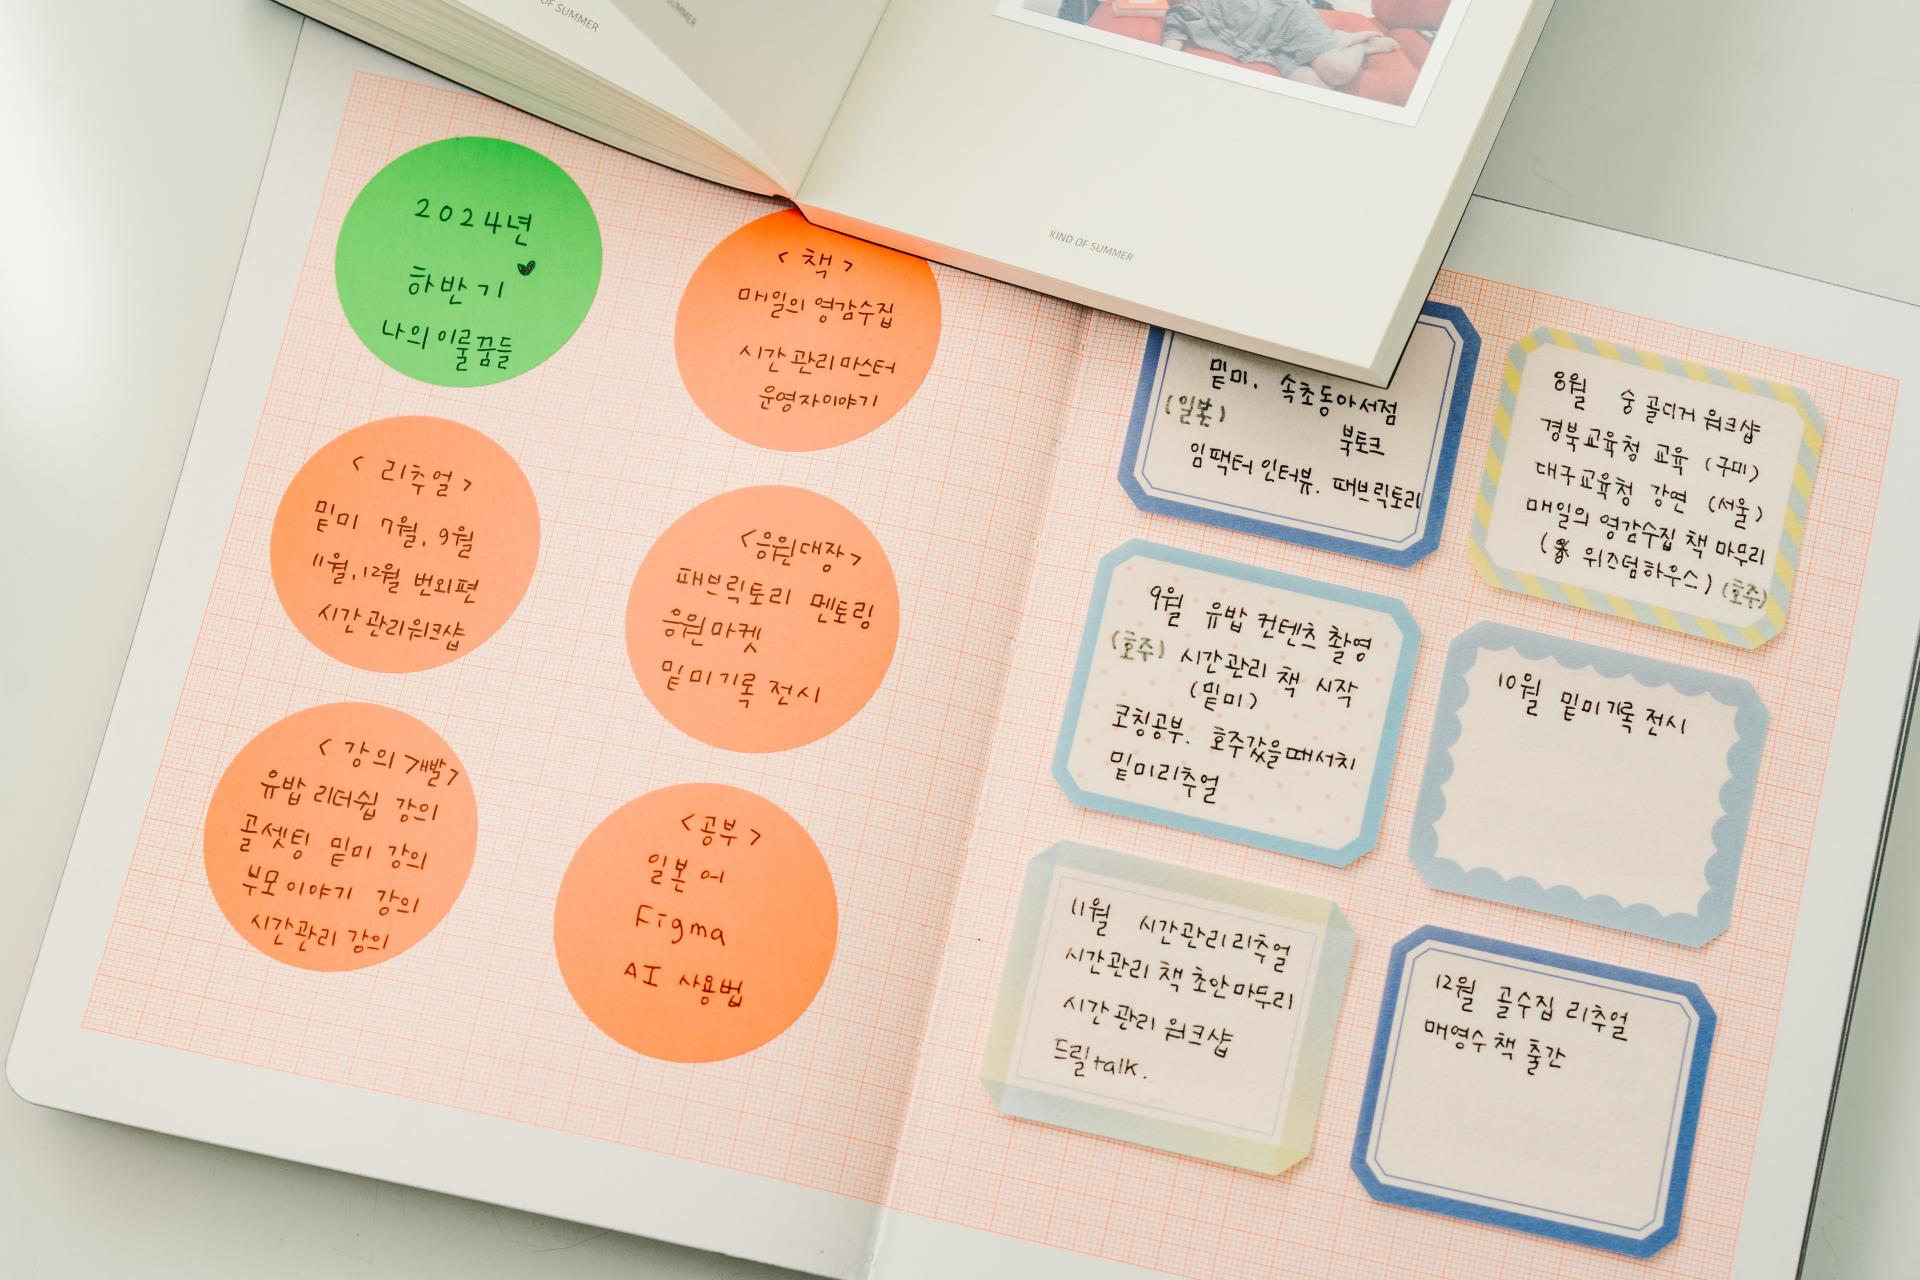 OF SUMMER
SUMMER
KIND OF SUMMER
2024년
하반기
나의 이룰꿈들
< 책 >
매일의 영감수집
시간관리마스터
운영자이야기
< 리추얼 >
밑미 7월, 9월
11월, 12월 번외편
시간관리워크샵
<응원대장>
패브릭토리 멘토링
응원마켓
밑미기록 전시
< 강의 개발>
유밥 리더쉽 강의
골셋팅 밑미 강의
부모이야기 강의
시간관리 강의
<공부>
일본어
Figma
AI 사용법
밑미. 속초동아서점
(일본)
북토크
임팩터 인터뷰. 패브릭토리
8월 숭 골디거 워크샵
경북교육청 교육 (구미)
대구교육청 강연 (서울)
매일의 영감수집 책 마무리
( 위즈덤하우스) (호주)
9월 유밥 컨텐츠 촬영
(호주) 시간관리 책 시작
(밑미)
코칭공부. 호주갔을때서치
밑미리추얼
10월 밑미기록 전시
11월 시간관리리추얼
시간관리 책 초안마무리
시간관리 워크샵
드릴talk.
12월 골수집 리추얼
매영수 책 출간